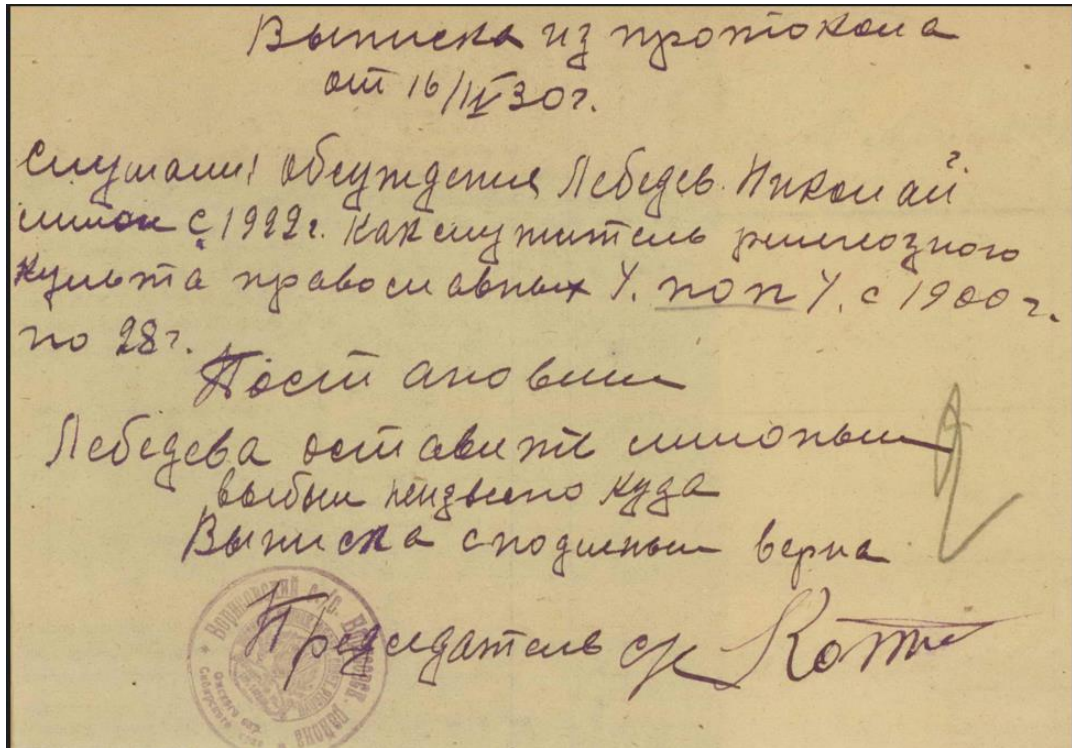 Выписка из протокола
от 16/IV 30г.
Слушали: обсуждения Лебедев. Николай
лишон с 1922г. как служитель религиозного
культа православных У. поп У. с 1900 г.
по 28г.
Постановили
Лебедева оставить лишоным
выбыл неизвесно куда
Выписка сподленым верна
Председатель с/с